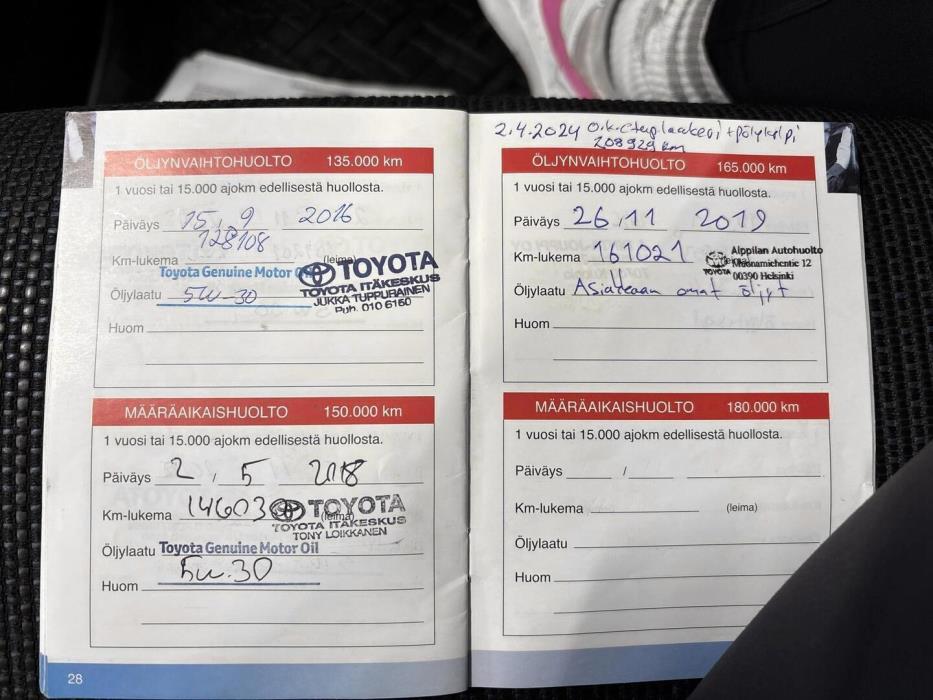 ÖLJYNVAIHTOHUOLTO 135.000 km
1 vuosi tai 15.000 ajokm edellisestä huollosta.
Päiväys 15 , 9 2016
128108
Km-lukema (leima)
Toyota Genuine Motor
Öljylaatu 5W-30
TOYOTA
TOYOTA ITÄKESKUS
JUKKA TUPPURAINEN
Puh. 010 6150
Huom
MÄÄRÄAIKAISHUOLTO 150.000 km
1 vuosi tai 15.000 ajokm edellisestä huollosta.
Päiväys 2 , 5 2018
Km-lukema 14603 (leima)
TOYOTA
TOYOTA ITÄKESKUS
TONY LOIKKANEN
Öljylaatu Toyota Genuine Motor Oil
5W-30
Huom
28
2.4.2024 laakeri +pölykilpi
208929 km
ÖLJYNVAIHTOHUOLTO 165.000 km
1 vuosi tai 15.000 ajokm edellisestä huollosta.
Päiväys 26 , 11 2019
Km-lukema 161021
TOYOTA
Alppilan Autohuolto
12
00390 Helsinki
Öljylaatu Asiakkaan omat öljyt
Huom
MÄÄRÄAIKAISHUOLTO 180.000 km
1 vuosi tai 15.000 ajokm edellisestä huollosta.
Päiväys /
Km-lukema (leima)
Öljylaatu
Huom